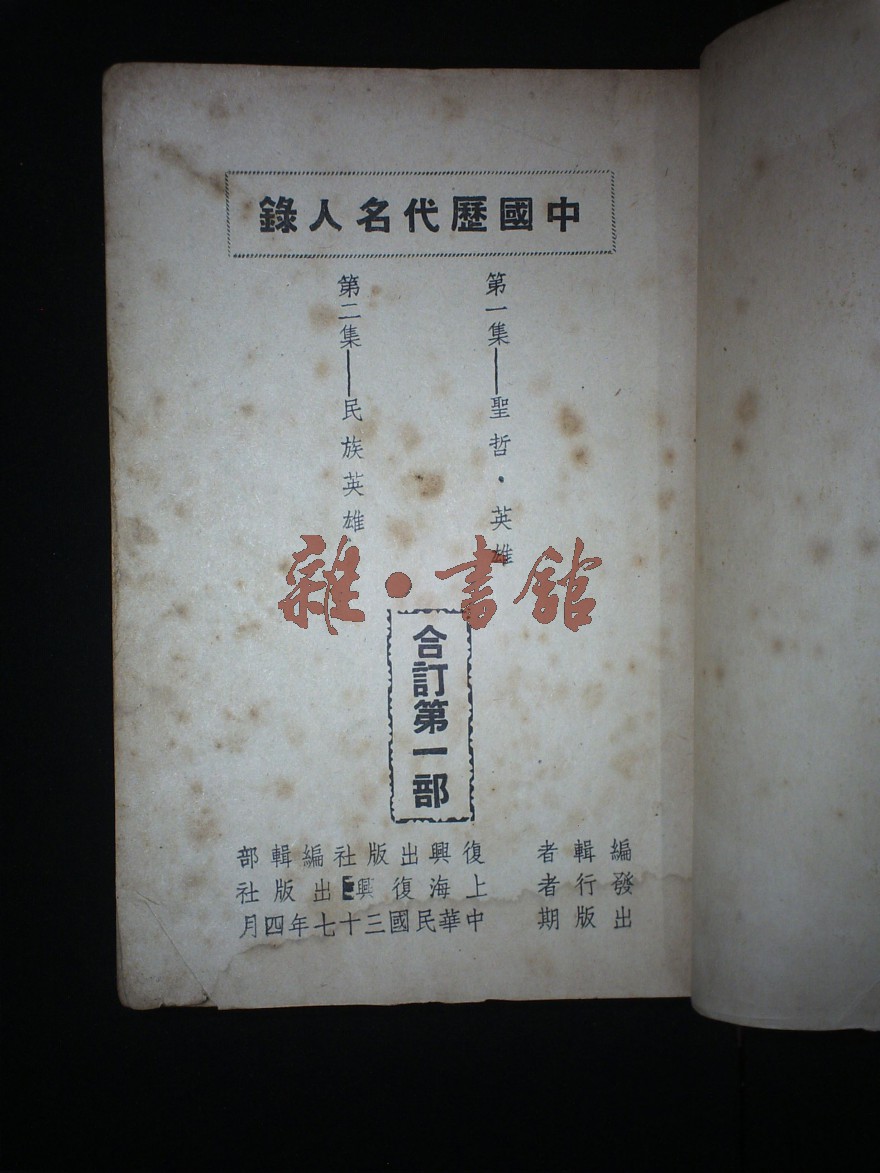 中國歷代名人錄
第一集——聖哲·英雄
第二集——民族英雄
雜·書館
合訂第一部
編輯者 復興出版社編輯部
發行者 上海復興出版社
出版期 中華民國三十七年四月